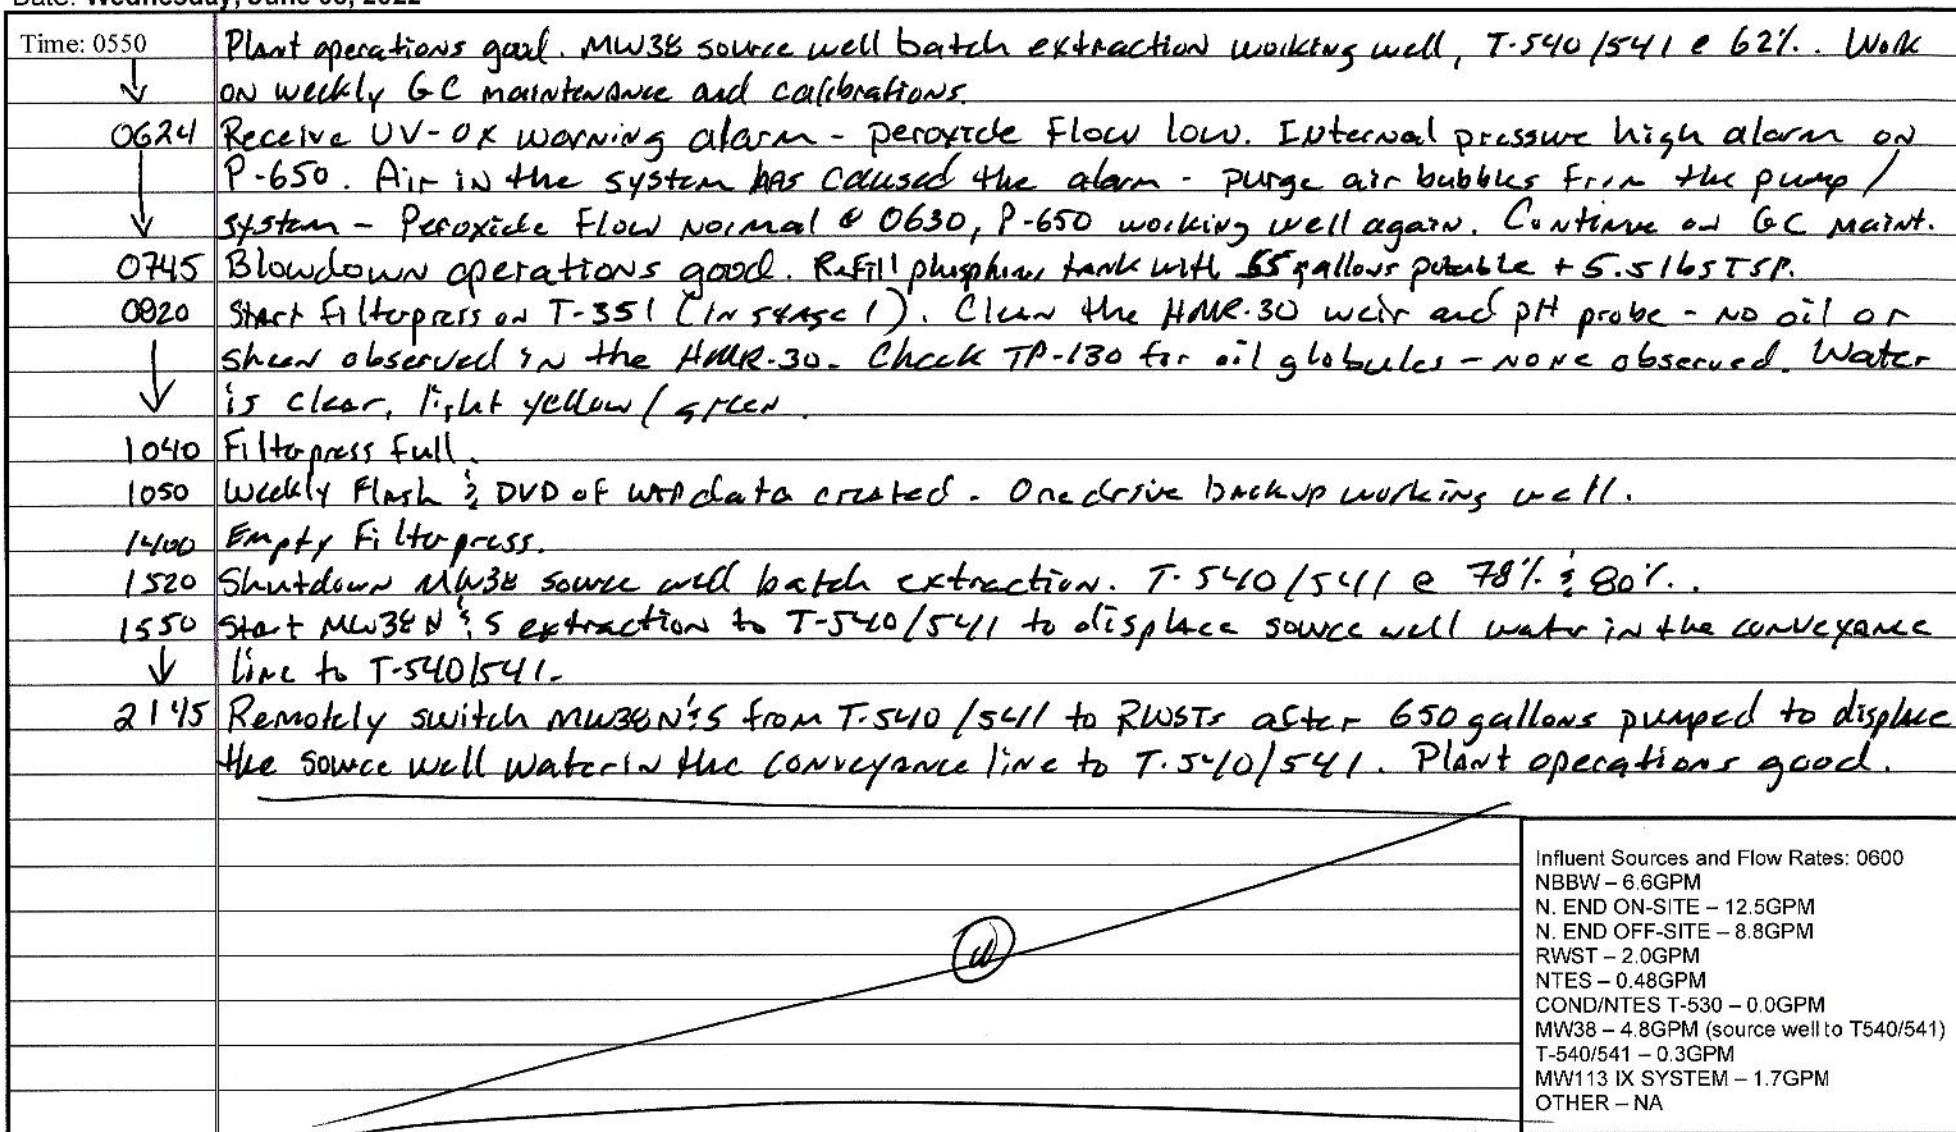 Date: Wednesday, June 08, 2022
Time: 0550 Plant operations good. MW38 source well batch extraction working well, T-540/541 @ 62%. Work
on weekly GC maintenance and calibrations.
0624 Receive UV-OX warning alarm - peroxide Flow low. Internal pressure high alarm on
P-650. Air in the system has caused the alarm - purge air bubbles from the pump/
system - Peroxide Flow normal @ 0630, P-650 working well again. Continue on GC maint.
0745 Blowdown operations good. Refill phosphate tank with 55 gallons potable + 5.5 lbs TSP.
0820 Start filterpress on T-351 (in stage 1). Clean the HMR-30 weir and pH probe - no oil or
sheen observed in the HMR-30. Check TP-130 for oil globules - none observed. Water
is clear, light yellow/green.
1040 Filterpress full.
1050 Weekly Flash & DVD of WTP data created. Onedrive backup working well.
1400 Empty Filterpress.
1520 Shutdown MW38 source well batch extraction. T-540/541 @ 78% & 80%.
1550 Start MW38N & S extraction to T-540/541 to displace source well water in the conveyance
line to T-540/541.
2145 Remotely switch MW38N & S from T-540/541 to RWSTs after 650 gallons pumped to displace
the source well water in the conveyance line to T-540/541. Plant operations good.
Influent Sources and Flow Rates: 0600
NBBW – 6.6GPM
N. END ON-SITE – 12.5GPM
N. END OFF-SITE – 8.8GPM
RWST – 2.0GPM
NTES – 0.48GPM
COND/NTES T-530 – 0.0GPM
MW38 – 4.8GPM (source well to T540/541)
T-540/541 – 0.3GPM
MW113 IX SYSTEM – 1.7GPM
OTHER – NA